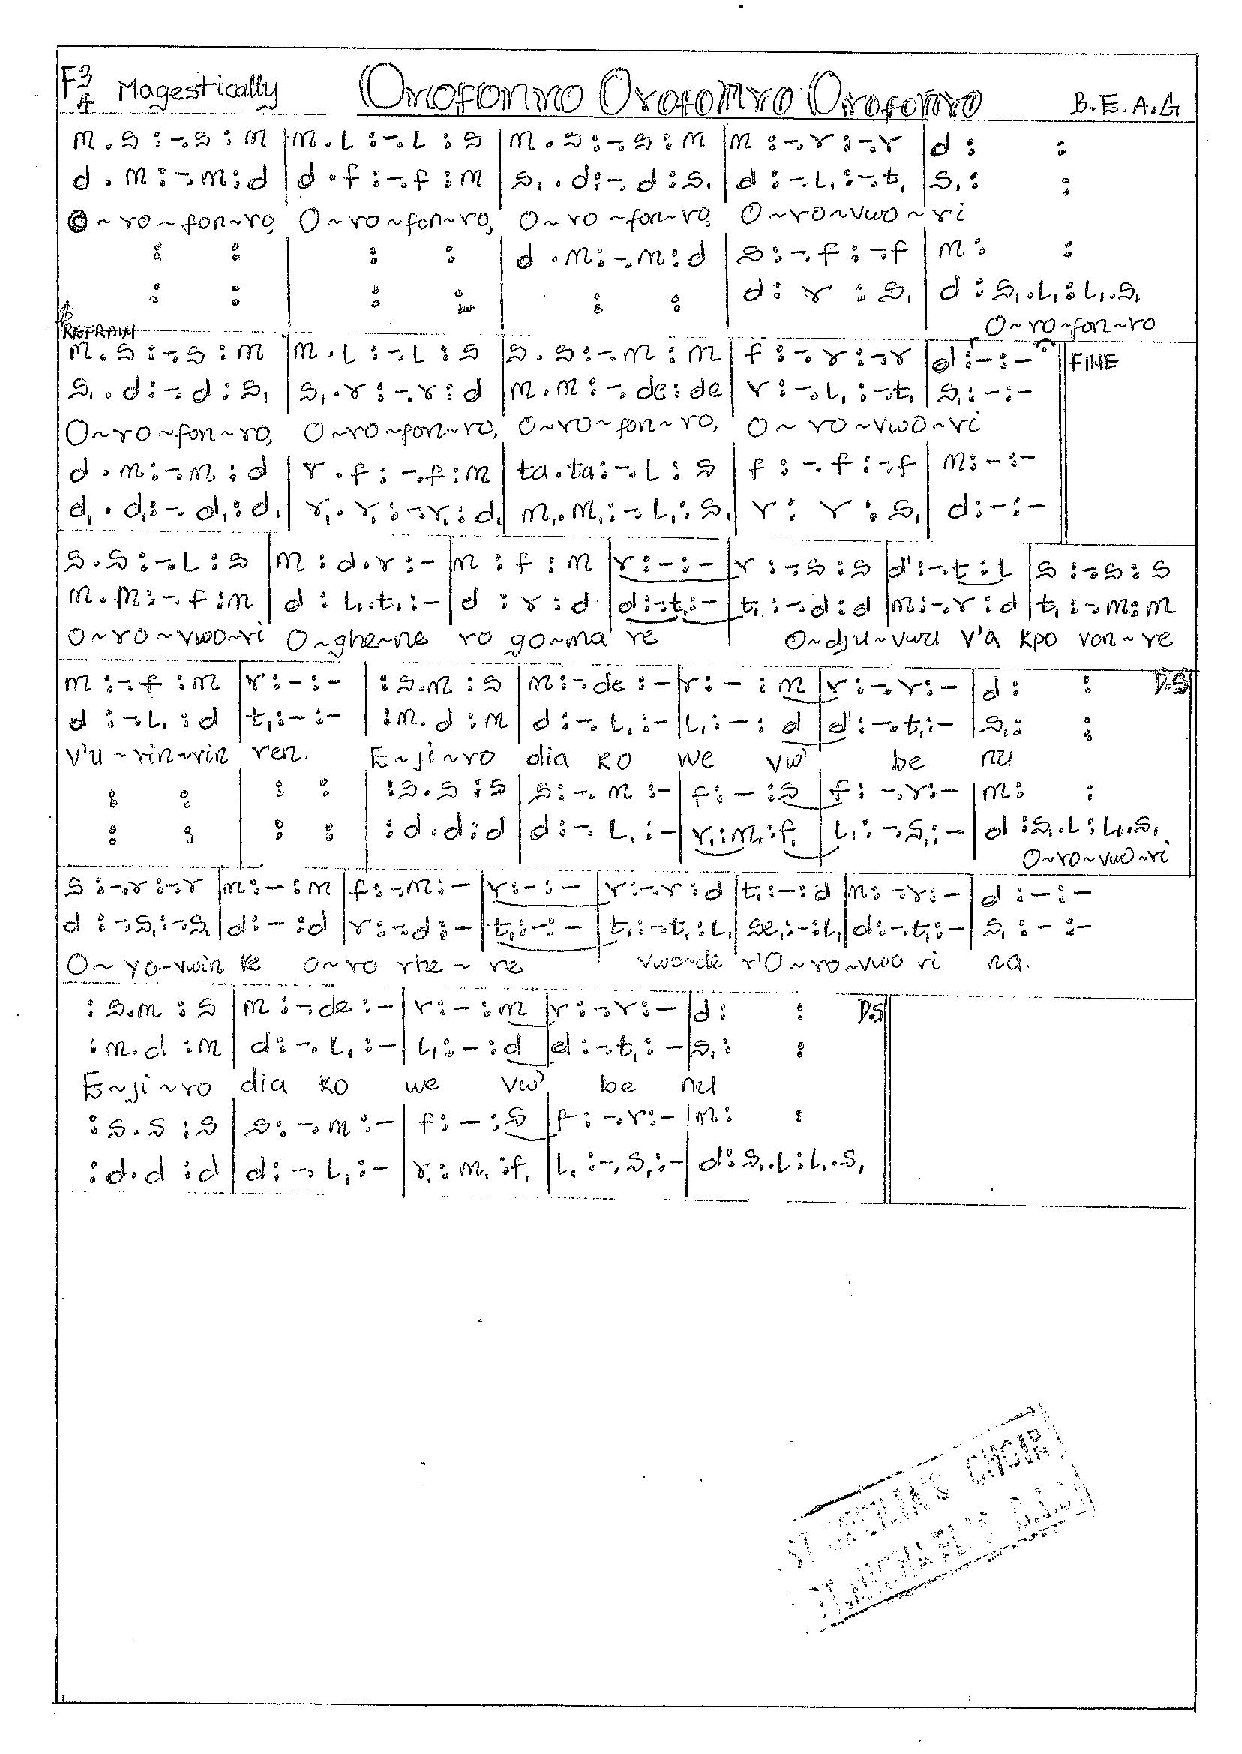 F 3/4 Magestically Orofonro Orofonro Orofonro B.E.A.G
m . s : -. s : m | m . l : -. l : s | m . s : -. s : m | m : -. r : -. r | d : :
d . m : -. m : d | d . f : -. f : m | s₁ . d : -. d : s₁ | d : -. l₁ : -. t₁ | s₁ : :
O~ro~fon~ro, O~ro~fon~ro, O~ro~fon~ro, O~ro~vwo~ri
: : | : : | d . m : -. m : d | s : -. f : -. f | m : :
: : | : : | : : | d : r : s₁ | d : s₁ . l₁ : l₁ . s₁
O~ro~fon~ro
REFRAIN
m . s : -. s : m | m . l : -. l : s | s . s : -. m : m | f : -. r : -. r | d : - : - || FINE
s₁ . d : -. d : s₁ | s₁ . r : -. r : d | m . m : -. de : de | r : -. l₁ : -. t₁ | s₁ : - : -
O~ro~fon~ro, O~ro~fon~ro, O~ro~fon~ro, O~ro~vwo~ri
d . m : -. m : d | r . f : -. f : m | ta . ta : -. l : s | f : -. f : -. f | m : - : -
d₁ . d₁ : -. d₁ : d₁ | r₁ . r₁ : -. r₁ : d₁ | m₁ . m₁ : -. l₁ : s₁ | r : r : s₁ | d : - : -
s . s : -. l : s | m : d . r : - | m : f : m | r : - : - | r : -. s : s | d' : -. t : l | s : -. s : s
m . m : -. f : m | d : l₁ . t₁ : - | d : r : d | d : -. t₁ : - | t₁ : -. d : d | m : -. r : d | t₁ : -. m : m
O~ro~vwo~ri O~ghe~ne ro go~ma' re O~dju~vwu v'a kpo von~re
m : -. f : m | r : - : - | : s . m : s | m : -. de : - | r : - : m | r : -. r : - | d : : D.S
d : -. l₁ : d | t₁ : - : - | : m . d : m | d : -. l₁ : - | l₁ : - : d | d : -. t₁ : - | s₁ : :
v'u~rin~rin ren. E~ji~ro dia ko we vw' be nu
: : | : : | : s . s : s | s : -. m : - | f : - : s | f : -. r : - | m : :
: : | : : | : d . d : d | d : -. l₁ : - | r₁ : m₁ : f₁ | l₁ : -. s₁ : - | d : s₁ . l₁ : l₁ . s₁
O~ro~vwo~ri
s : -. r : -. r | m : - : m | f : -. m : - | r : - : - | r : -. r : d | t₁ : - : d | m : -. r : - | d : - : -
d : -. s₁ : -. s₁ | d : - : d | r : -. d : - | t₁ : - : - | t₁ : -. t₁ : l₁ | se₁ : - : l₁ | d : -. t₁ : - | s₁ : - : -
O~yo~vwin ke o~ro rhe~re vwo~de r'O~ro~vwo ri na.
: s . m : s | m : -. de : - | r : - : m | r : -. r : - | d : : D.S
: m . d : m | d : -. l₁ : - | l₁ : - : d | d : -. t₁ : - | s₁ : :
E~ji~ro dia ko we vw' be nu
: s . s : s | s : -. m : - | f : - : s | f : -. r : - | m : :
: d . d : d | d : -. l₁ : - | r₁ : m₁ : f₁ | l₁ : -. s₁ : - | d : s₁ . l₁ : l₁ . s₁
CHOIR